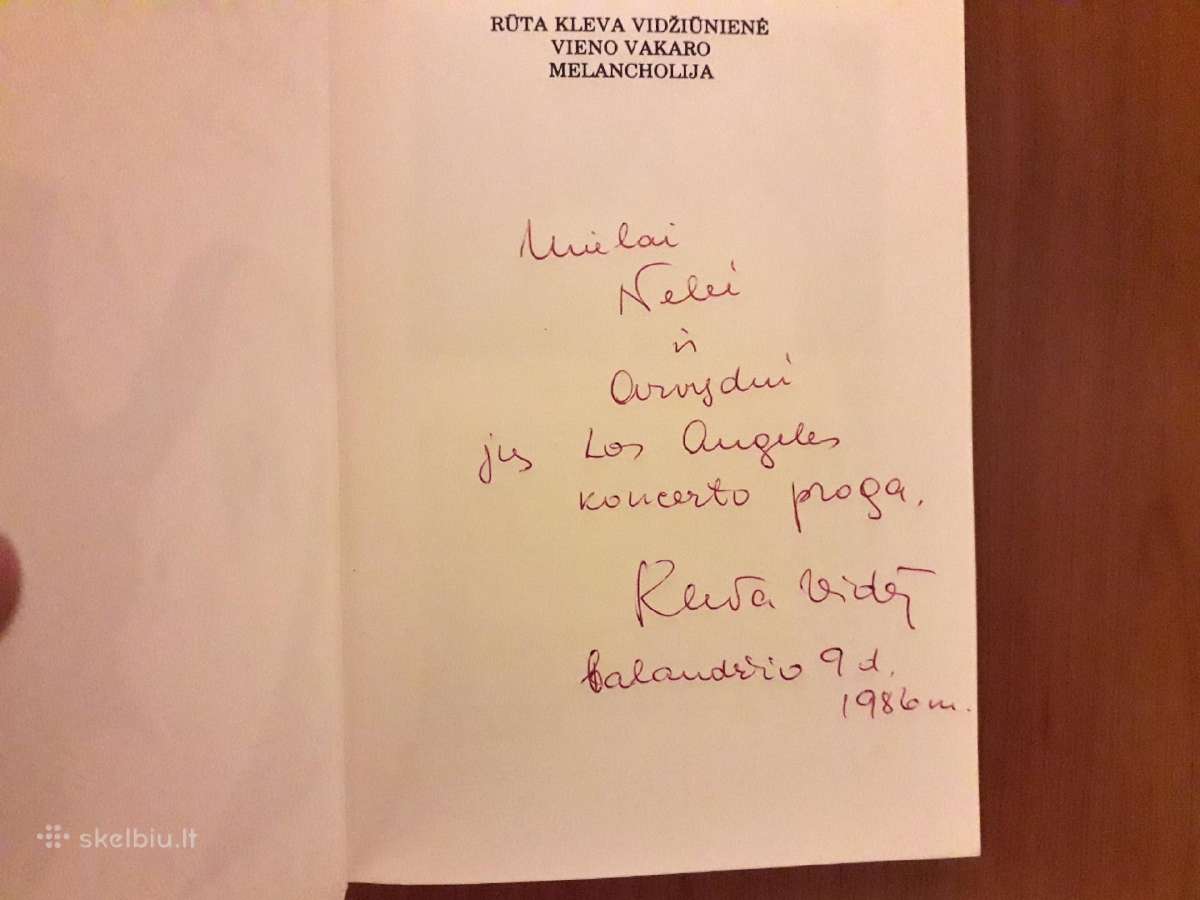 RŪTA KLEVA VIDŽIŪNIENĖ
VIENO VAKARO
MELANCHOLIJA
Mielai
Nelei
ir
Arvydui
jųs Los Angeles
koncerto proga.
Balandžio 9 d.
1986 m.
skelbiu.lt